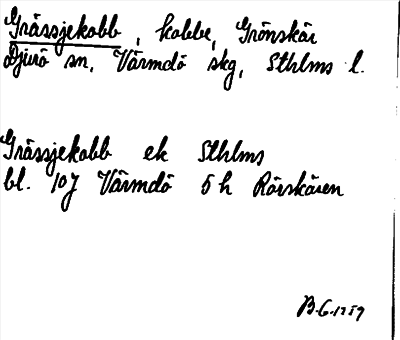 Grässjekobb, kobbe, Grönskär
Djurö sn, Värmdö skg, Sthlms l.
Grässjekobb ek Sthlms
bl. 107 Värmdö 5h Rörskären
B.G. 1959